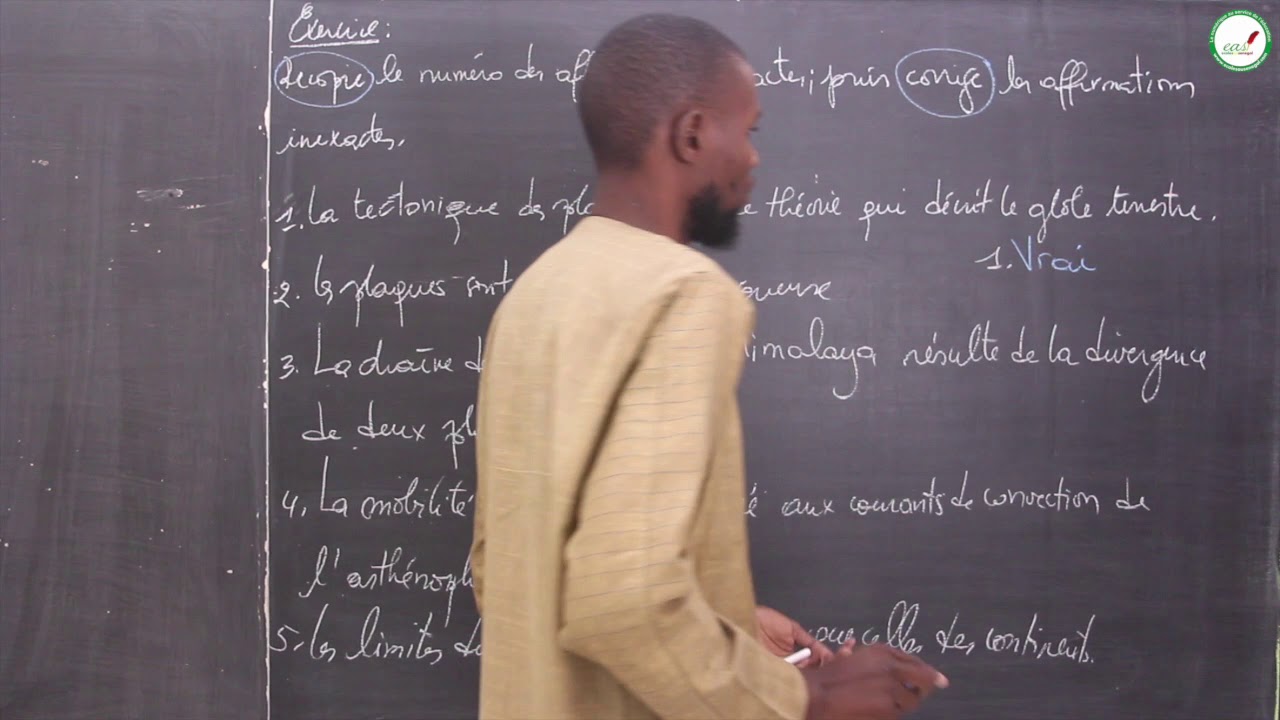 Exercice :
Recopie le numéro des aff actes, puis corrige les affirmations
inexactes.
1. La tectonique des pla e théorie qui décrit le globe terrestre.
1. Vrai
2. les plaques sont
3. La chaîne d imalaya résulte de la divergence
de deux pl
4. La mobilité é aux courants de convection de
l'asthénosph
5. les limites d celles des continents.
easi